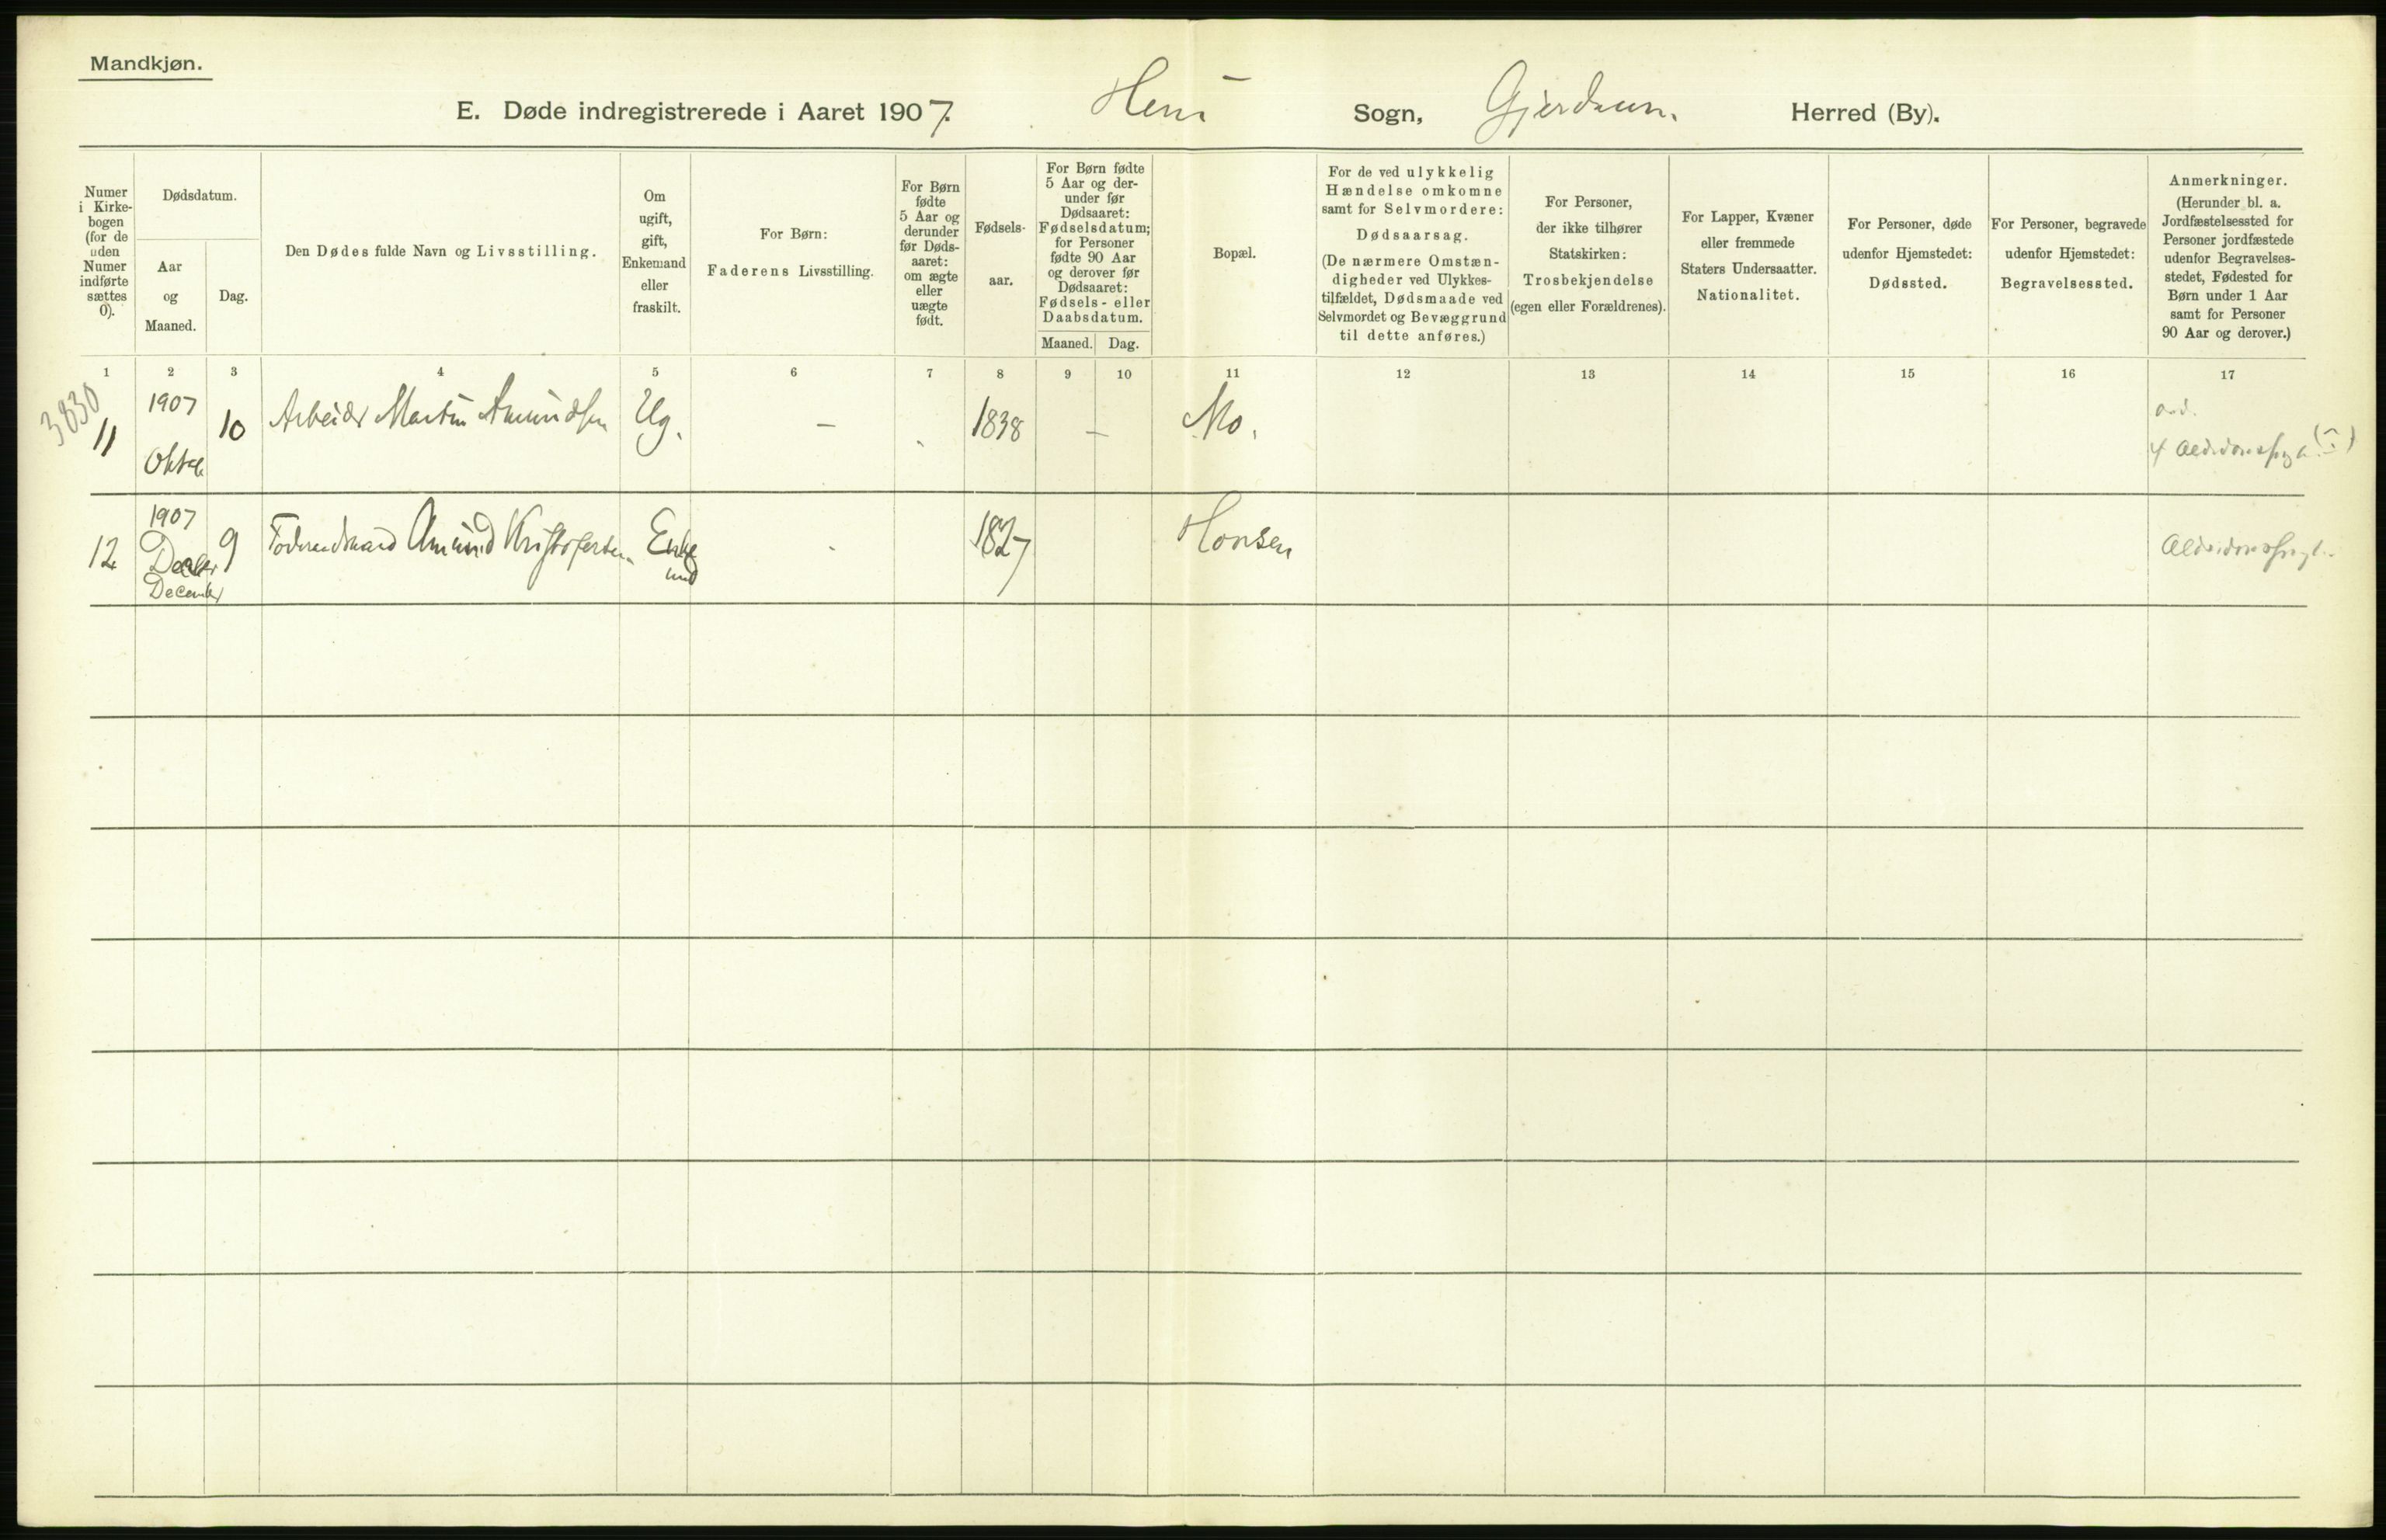 Mandkjøn.
E. Døde indregistrerede i Aaret 1907. Heni Sogn, Gjerdrum. Herred (By).
Numer i Kirkebogen (for de uden Numer indførte sættes 0).
Dødsdatum.
Aar og Maaned.
Dag.
Den Dødes fulde Navn og Livsstilling.
Om ugift, gift, Enkemand eller fraskilt.
For Børn: Faderens Livsstilling.
For Børn fødte 5 Aar og derunder før Dødsaaret: om ægte eller uægte født.
Fødselsaar.
For Børn fødte 5 Aar og derunder før Dødsaaret: Fødselsdatum; for Personer fødte 90 Aar og derover før Dødsaaret: Fødsels- eller Daabsdatum.
Maaned. Dag.
Bopæl.
For de ved ulykkelig Hændelse omkomne samt for Selvmordere: Dødsaarsag. (De nærmere Omstændigheder ved Ulykkestilfældet, Dødsmaade ved Selvmordet og Bevæggrund til dette anføres.)
For Personer, der ikke tilhører Statskirken: Trosbekjendelse (egen eller Forældrenes).
For Lapper, Kvæner eller fremmede Staters Undersaatter. Nationalitet.
For Personer, døde udenfor Hjemstedet: Dødssted.
For Personer, begravede udenfor Hjemstedet: Begravelsessted.
Anmerkninger. (Herunder bl. a. Jordfæstelsessted for Personer jordfæstede udenfor Begravelsesstedet, Fødested for Børn under 1 Aar samt for Personer 90 Aar og derover.)
1 2 3 4 5 6 7 8 9 10 11 12 13 14 15 16 17
3830
11 1907 Oktob 10 Arbeider Martin Amundsen Ug. – 1838 – Mo.
12 1907 December 9 Føderaadsmand Amund Kristofersen Enkemd 1827 Honsen